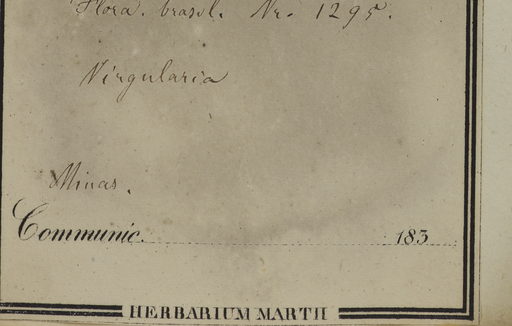 Flora. brasil. Nr. 1295.
Virgularia
Minas.
Communic. 183
HERBARIUM MARTII